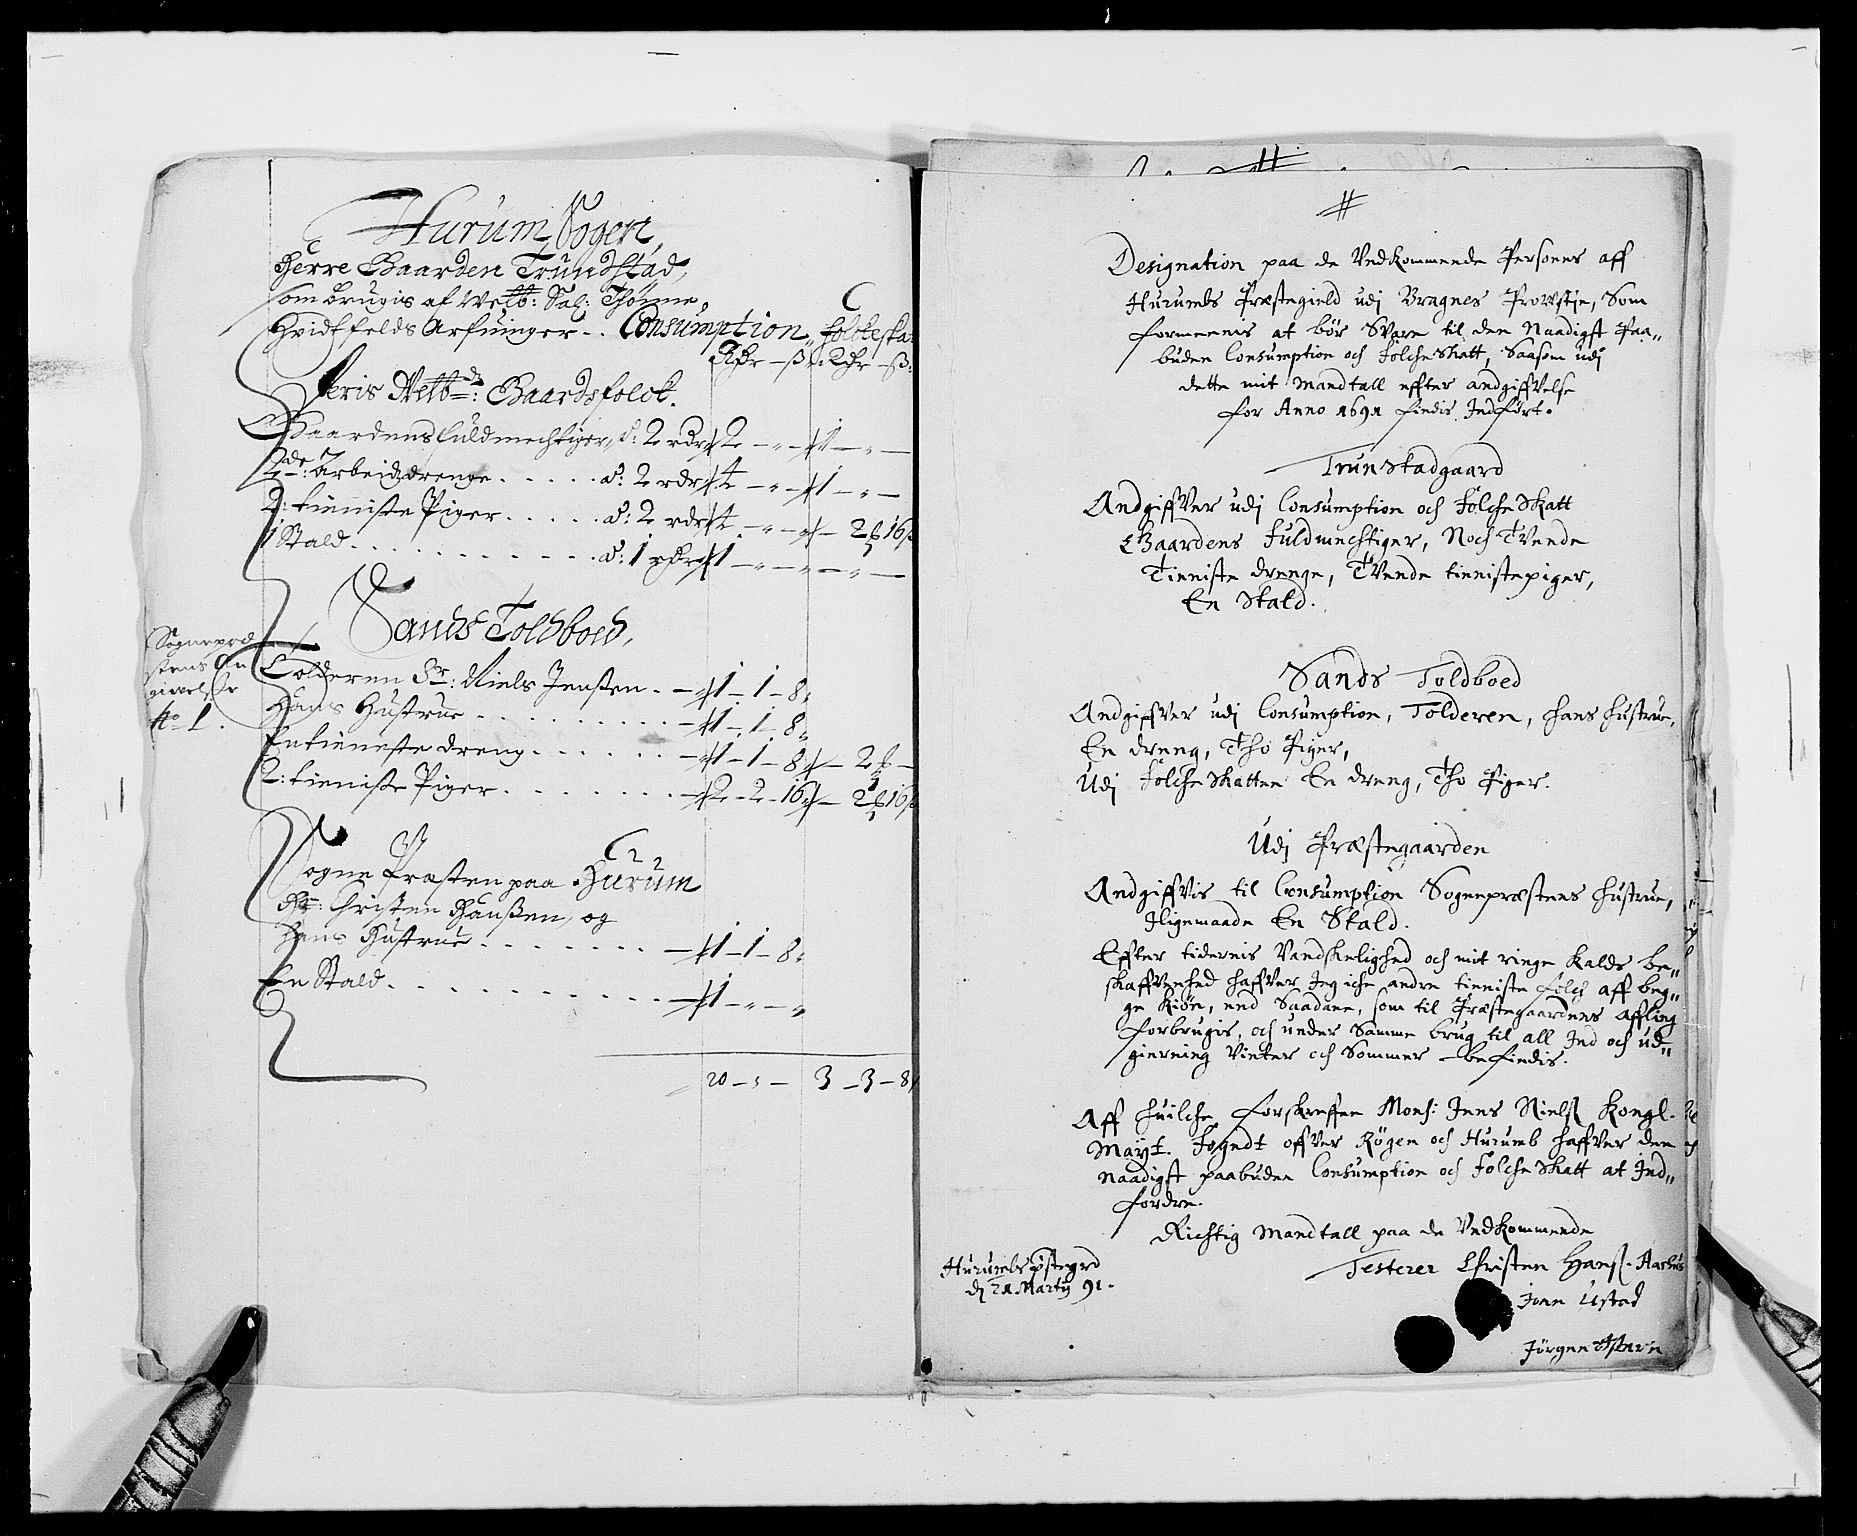 Hurum Sogen,
Herre Gaarden Trundstad,
som brugis af Welb: Sal: Thønne
Hvidtfelds Arfvinger .. Consumption, folckeska
Rdr – ß – Rdr – ß:
Jeris Welb:de: Gaardsfolck.
Gaardens fuldmechtiger, á: 2 rdr 2 – „ – 1 – „ –
2de: Arbeidzdrenge . . . . . á: 2 rdr 4 – „ – 1 – „ –
2: tieniste Piger . . . . . á: 2 rdr 4 – „ – – 2 16
1 Stald . . . . . . . . . . . á: 1 rdr 1 – „ – „ – „ –
Sands Toldboed,
Sognepræ
stens An
givelse
No 1.
Tolderen Sr: Niels Jensen . – 1 – 1 – 8
Hans Hustrue . . . . . . . . – 1 – 1 – 8
En tieneste dreng . . . . . – 1 – 1 – 8 – 2 –
2: tieniste Piger . . . . . . . – 2 – 2 – 16 – 2 16
Sogne Præsten paa Hurum
Hr: Christen Hanßen, og
hans Hustrue . . . . . . . – 1 – 1 – 8
En Stald . . . . . . . . . . . – 1 – „ – „
20 – „ – 3 – 3 – 8
Designation paa de Vedkommende Persones aff
Hurumbs Præstegield udj Bragnes Prowstje, Som
formeenis at bør Svare til den Naadigst Paa„
buden Consumption och Folcheskatt, Saasom udj
dette mit Mandtall effter andgiffvelse
for Anno 1691 findis Indført.
Trunstadgaard
Andgiffver udj Consumption och Folcheskatt
Gaardens Fuldmechtiger, Noch Tvende
Tieniste drenge, Tvende tienistepiger,
En Stald.
Sands Toldboed
Andgiffver udj Consumption, Tolderen, hans hustrue,
En dreng, Tho Piger,
Udj Folcheskatten En dreng, Tho Piger.
Udj Præstegaarden
Andgiffvis til Consumption Sognepræstens hustrue,
Iligemaade En Stald.
Effter tidernis Vandskelighed och mit ringe Kalds be„
skaffvenhed haffver Jeg iche andre tieniste folch aff beg„
ge Kiøn, end Saadane, som til Præstegaardens affling
forbrugis, och under Samme brug til all Ind och ud„
gierning Vinter och Sommer – befindis.
Aff huilche forskreffne Mons: Jens Nielß Kongl.
Mayt. Fogedt offver Røgen och Hurumb haffver den
Naadigst paabuden Consumption och Folcheskatt at Ind„
fordre.
Richtig Mandtall paa de Vedkommende
Hurumbs pstegrd
dj 21 Martij 91.
Testerer Christen Hanß. Aarhus
Jonn Ustad
Jörgen